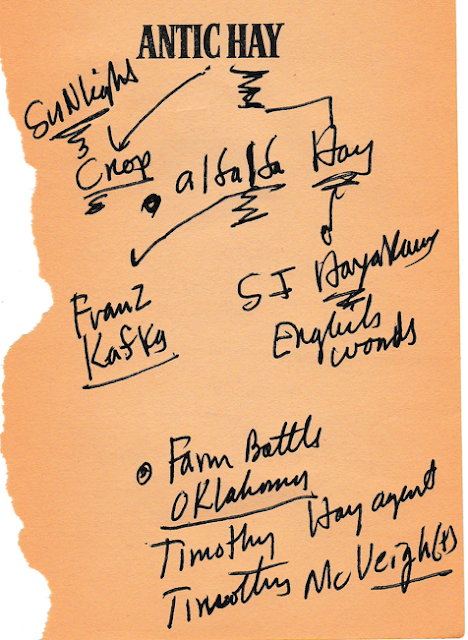 ANTIC HAY
SUNlight
Crop alfalfa Hay
Franz
Kafka
SI Hayakawa
English
words
Farm Battle
OKlahoma
Timothy Hay agent
Timothy McVeigh(t)